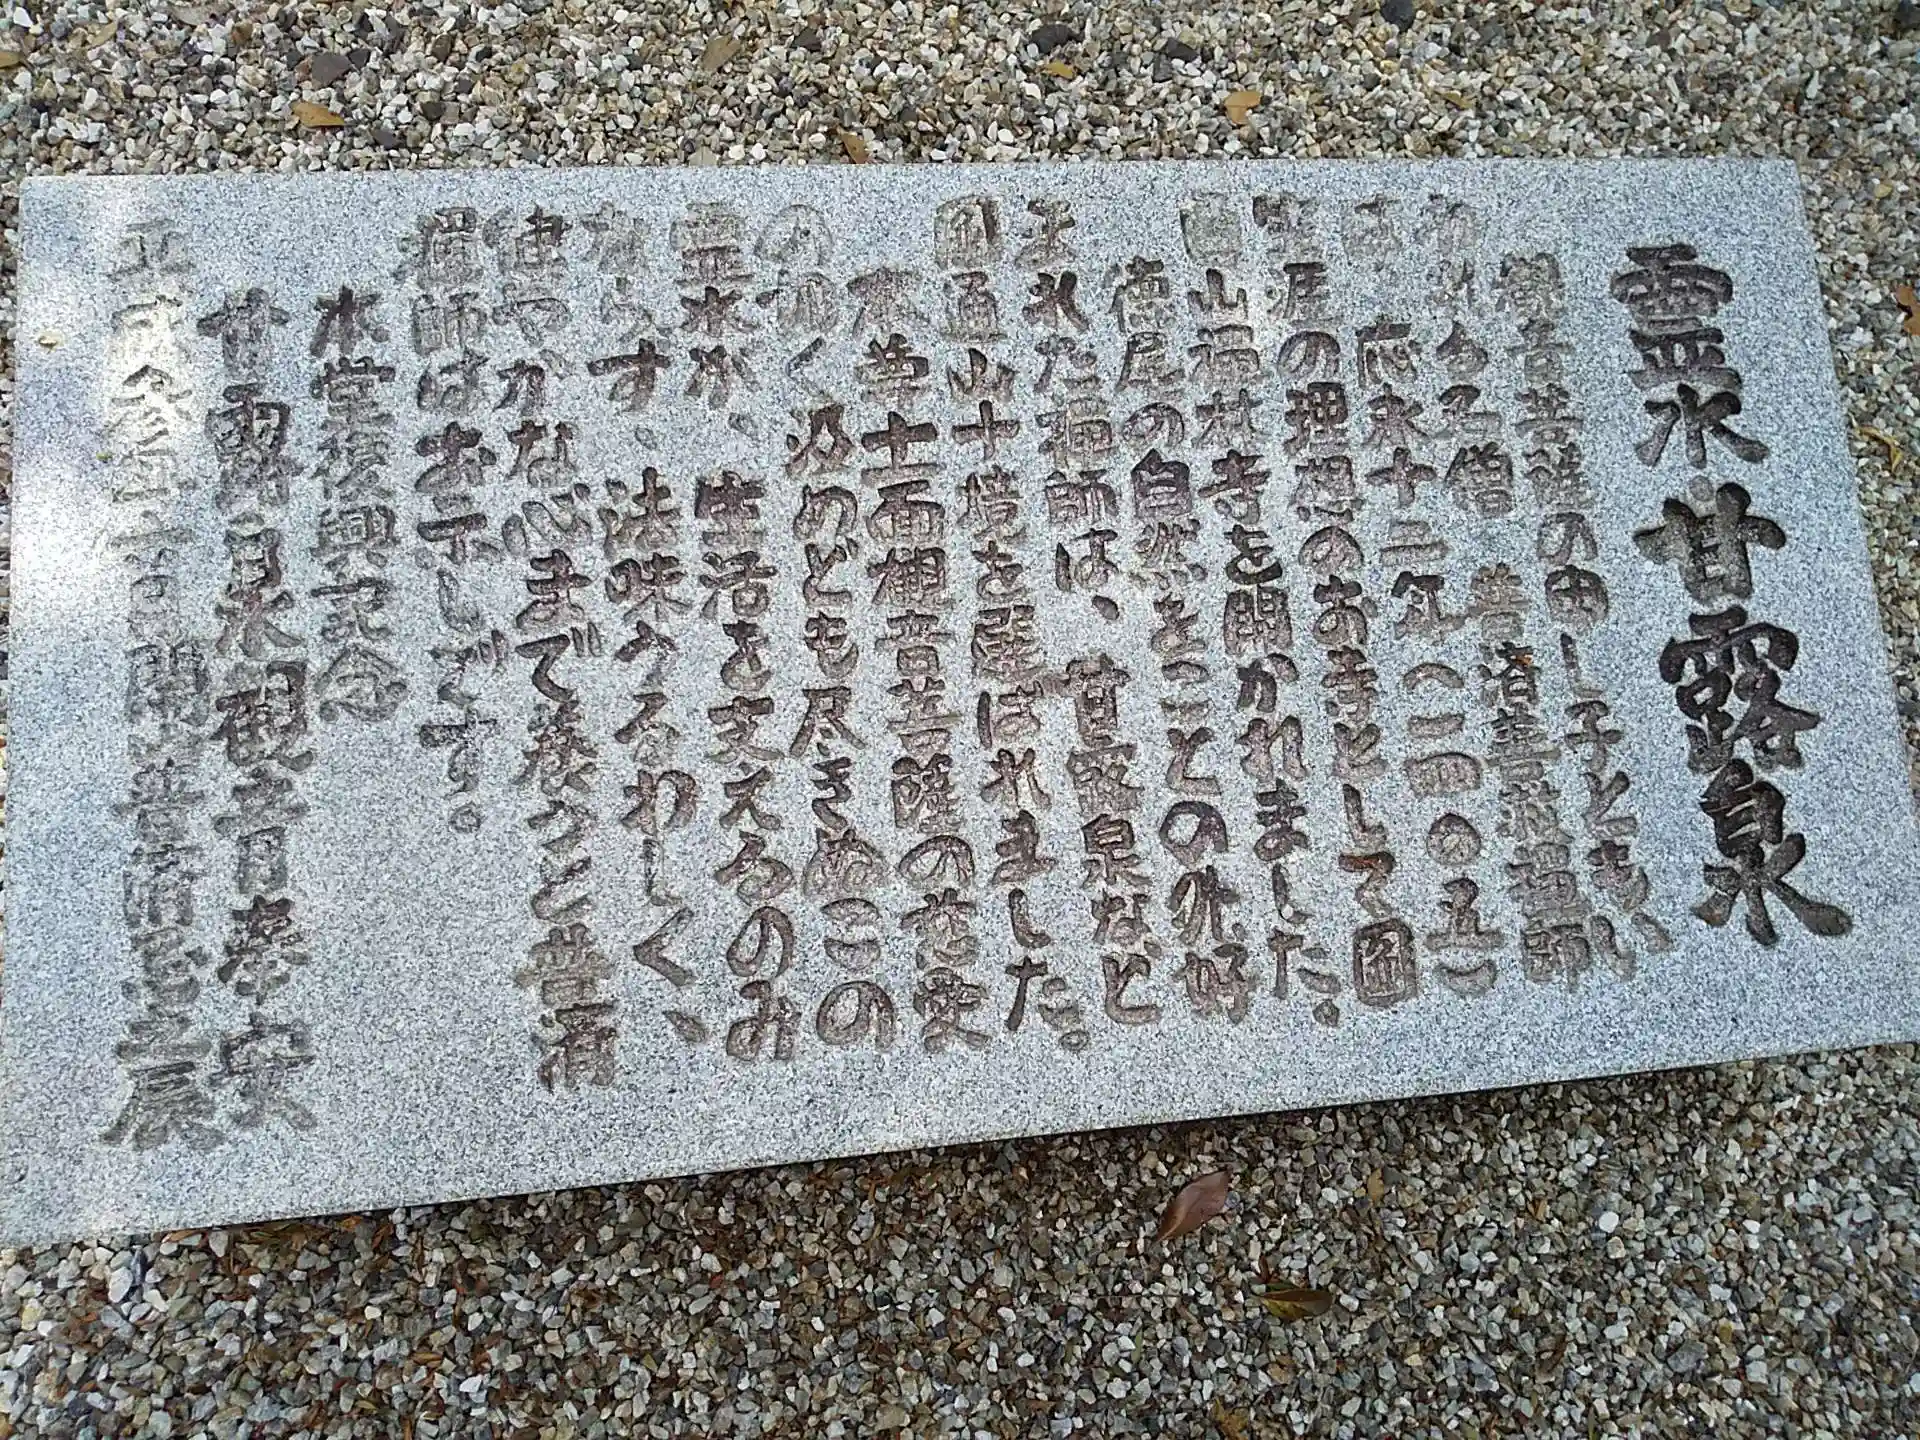 霊水 甘露泉
観音菩薩の申し子ともい
われる名僧 普済善救禅師
は 応永十二年(一四〇五)
生涯の理想のお寺として圓
通山福林寺を開かれました。
徳尾の自然をことの外好
まれた禅師は、甘露泉など
圓通山十境を選ばれました。
本尊十一面観音菩薩の慈愛
の如く汲めども尽きぬこの
霊水が、生活を支えるのみ
ならず、法味うるわしく、
健やかな心まで養うと普済
禅師はお示しです。
水堂復興記念
甘露泉観音奉安